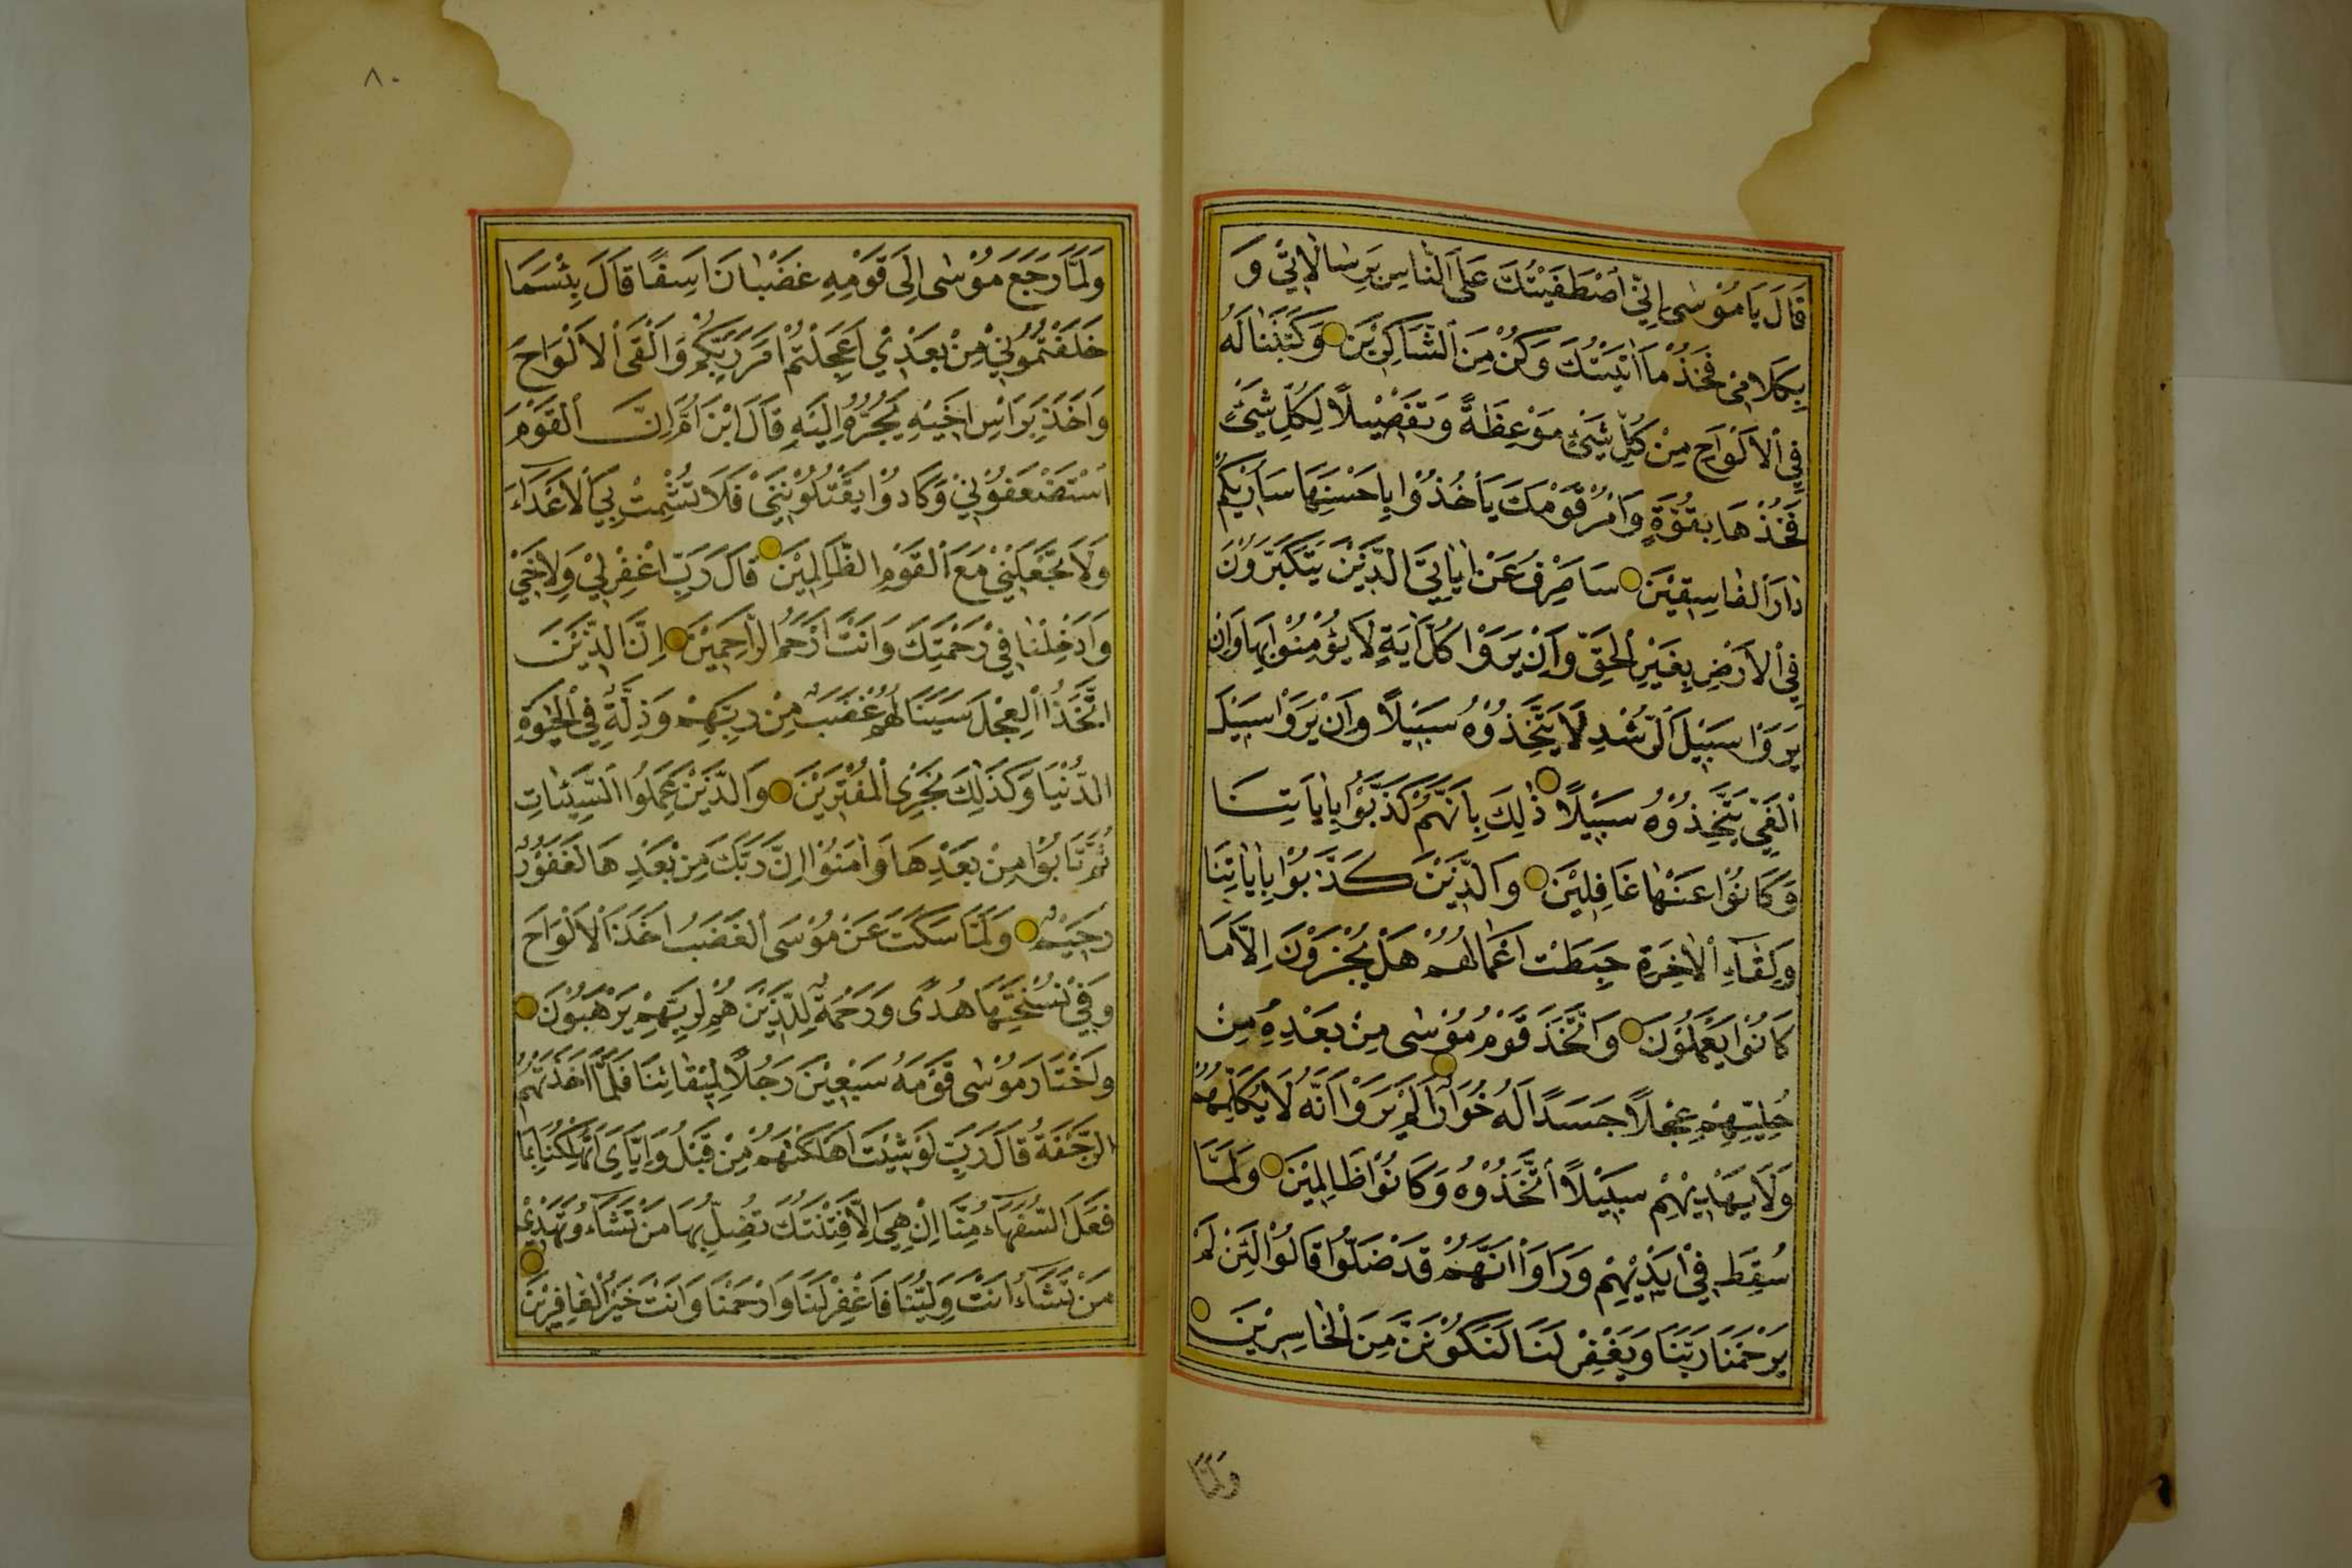 قَالَ يَا مُوْسٰى اِنِّي اصْطَفَيْتُكَ عَلَى النَّاسِ بِرِسَالَاتِي وَ
بِكَلَامِي فَخُذْ مَا اٰتَيْتُكَ وَكُنْ مِنَ الشَّاكِرِيْنَ وَكَتَبْنَا لَهُ
فِي الْاَلْوَاحِ مِنْ كُلِّ شَيْءٍ مَوْعِظَةً وَتَفْصِيْلًا لِكُلِّ شَيْءٍ
فَخُذْهَا بِقُوَّةٍ وَأْمُرْ قَوْمَكَ يَأْخُذُوْا بِاَحْسَنِهَا سَاُرِيْكُمْ
دَارَ الْفَاسِقِيْنَ سَاَصْرِفُ عَنْ اٰيَاتِيَ الَّذِيْنَ يَتَكَبَّرُوْنَ
فِي الْاَرْضِ بِغَيْرِ الْحَقِّ وَاِنْ يَرَوْا كُلَّ اٰيَةٍ لَا يُؤْمِنُوْا بِهَا وَاِنْ
يَرَوْا سَبِيْلَ الرُّشْدِ لَا يَتَّخِذُوْهُ سَبِيْلًا وَاِنْ يَرَوْا سَبِيْلَ
الْغَيِّ يَتَّخِذُوْهُ سَبِيْلًا ذٰلِكَ بِاَنَّهُمْ كَذَّبُوْا بِاٰيَاتِنَا
وَكَانُوْا عَنْهَا غَافِلِيْنَ وَالَّذِيْنَ كَذَّبُوْا بِاٰيَاتِنَا
وَلِقَاءِ الْاٰخِرَةِ حَبِطَتْ اَعْمَالُهُمْ هَلْ يُجْزَوْنَ اِلَّا مَا
كَانُوْا يَعْمَلُوْنَ وَاتَّخَذَ قَوْمُ مُوْسٰى مِنْ بَعْدِهِ مِنْ
حُلِيِّهِمْ عِجْلًا جَسَدًا لَهُ خُوَارٌ اَلَمْ يَرَوْا اَنَّهُ لَا يُكَلِّمُهُمْ
وَلَا يَهْدِيْهِمْ سَبِيْلًا اتَّخَذُوْهُ وَكَانُوْا ظَالِمِيْنَ وَلَمَّا
سُقِطَ فِيْ اَيْدِيْهِمْ وَرَاَوْا اَنَّهُمْ قَدْ ضَلُّوْا قَالُوْا لَئِنْ لَمْ
يَرْحَمْنَا رَبُّنَا وَيَغْفِرْ لَنَا لَنَكُوْنَنَّ مِنَ الْخَاسِرِيْنَ
وَلَمَّا
٨٠
وَلَمَّا رَجَعَ مُوْسٰى اِلٰى قَوْمِهِ غَضْبَانَ اَسِفًا قَالَ بِئْسَمَا
خَلَفْتُمُوْنِيْ مِنْ بَعْدِيْ اَعَجِلْتُمْ اَمْرَ رَبِّكُمْ وَاَلْقَى الْاَلْوَاحَ
وَاَخَذَ بِرَاْسِ اَخِيْهِ يَجُرُّهُ اِلَيْهِ قَالَ ابْنَ اُمَّ اِنَّ الْقَوْمَ
اسْتَضْعَفُوْنِيْ وَكَادُوْا يَقْتُلُوْنَنِيْ فَلَا تُشْمِتْ بِيَ الْاَعْدَاءَ
وَلَا تَجْعَلْنِيْ مَعَ الْقَوْمِ الظَّالِمِيْنَ قَالَ رَبِّ اغْفِرْ لِيْ وَلِاَخِيْ
وَاَدْخِلْنَا فِيْ رَحْمَتِكَ وَاَنْتَ اَرْحَمُ الرَّاحِمِيْنَ اِنَّ الَّذِيْنَ
اتَّخَذُوا الْعِجْلَ سَيَنَالُهُمْ غَضَبٌ مِنْ رَبِّهِمْ وَذِلَّةٌ فِي الْحَيٰوةِ
الدُّنْيَا وَكَذٰلِكَ نَجْزِي الْمُفْتَرِيْنَ وَالَّذِيْنَ عَمِلُوا السَّيِّئَاتِ
ثُمَّ تَابُوْا مِنْ بَعْدِهَا وَاٰمَنُوْا اِنَّ رَبَّكَ مِنْ بَعْدِهَا لَغَفُوْرٌ
رَحِيْمٌ وَلَمَّا سَكَتَ عَنْ مُوْسَى الْغَضَبُ اَخَذَ الْاَلْوَاحَ
وَفِيْ نُسْخَتِهَا هُدًى وَرَحْمَةٌ لِلَّذِيْنَ هُمْ لِرَبِّهِمْ يَرْهَبُوْنَ
وَاخْتَارَ مُوْسٰى قَوْمَهُ سَبْعِيْنَ رَجُلًا لِمِيْقَاتِنَا فَلَمَّا اَخَذَتْهُمُ
الرَّجْفَةُ قَالَ رَبِّ لَوْ شِئْتَ اَهْلَكْتَهُمْ مِنْ قَبْلُ وَاِيَّايَ اَتُهْلِكُنَا بِمَا
فَعَلَ السُّفَهَاءُ مِنَّا اِنْ هِيَ اِلَّا فِتْنَتُكَ تُضِلُّ بِهَا مَنْ تَشَاءُ وَتَهْدِيْ
مَنْ تَشَاءُ اَنْتَ وَلِيُّنَا فَاغْفِرْ لَنَا وَارْحَمْنَا وَاَنْتَ خَيْرُ الْغَافِرِيْنَ